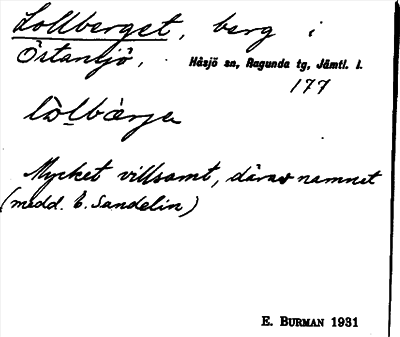 Lollberget, berg i
Östansjö, Håsjö sn, Ragunda tg, Jämtl. l.
177
lòlbærje
Mycket villsamt, därav namnet
(medd. E. Sandelin)
E. BURMAN 1931